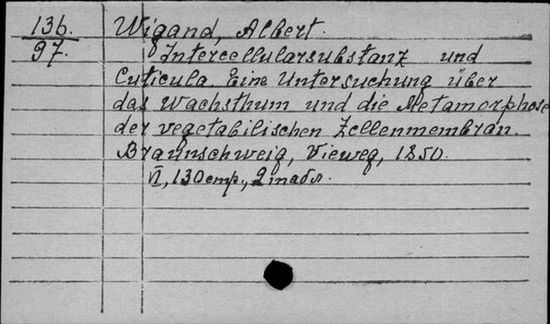 136. Wigand, Albert.
97. Intercellularsubstanz und
Cuticula. Eine Untersuchung über
das Wachsthum und die Metamorphose
der vegetabilischen Zellenmembran.
Braunschweig, Vieweg, 1850.
VI, 130 стр., 2 табл.